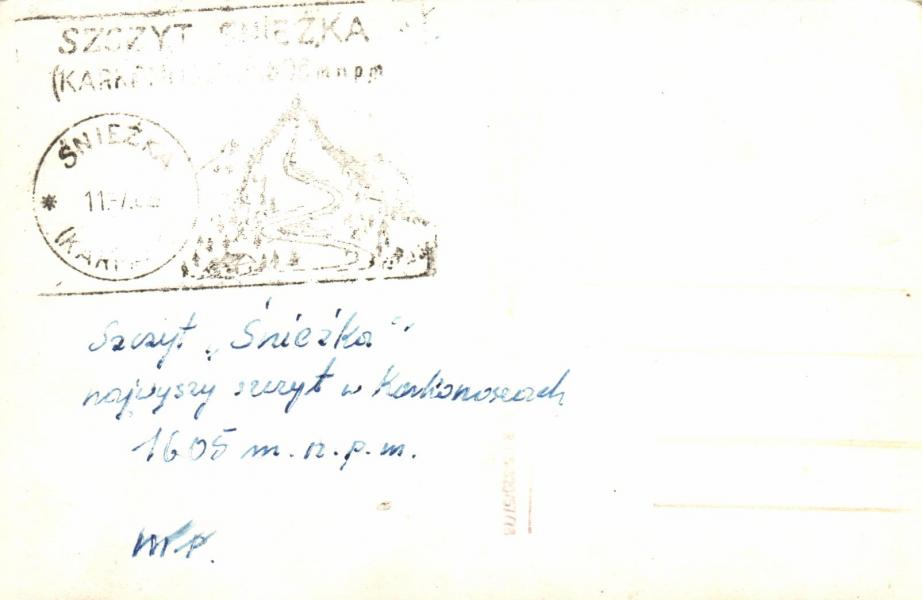 SZCZYT ŚNIEŻKA
m n p m
ŚNIEŻKA
Szczyt „Śnieżka"
najwyszy szczyt w Karkonoszach
1605 m. n. p. m.